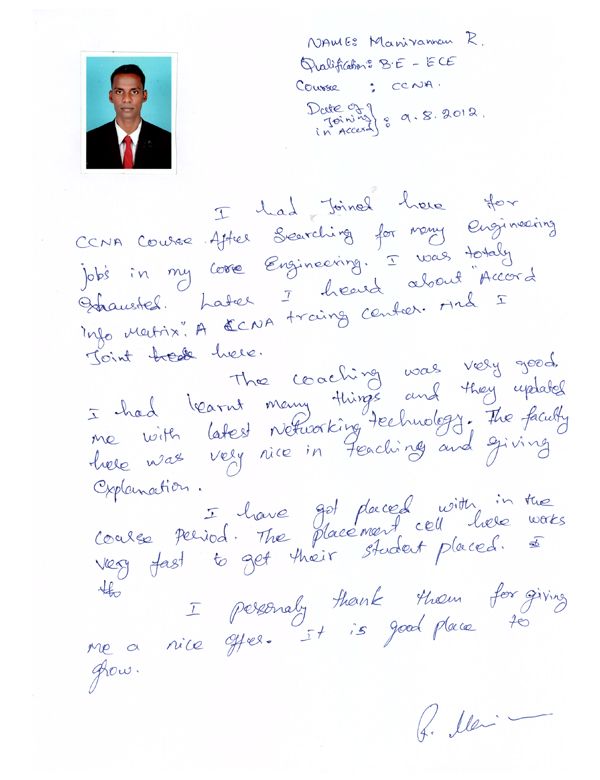 NAME: Manivannan R.
Qualification: B.E - ECE
Course : CCNA.
Date of
Joining
in Accord } : 9.8.2012.
I had Joined here for
CCNA Course After Searching for many engineering
jobs in my core Engineering. I was totaly
Exhausted. Later I heard about "Accord
Info Matrix". A CCNA traing center. And I
Joint here.
The coaching was very good.
I had learnt many things and they updated
me with latest Networking technology. The faculty
here was very nice in teaching and giving
Explanation.
I have got placed with in the
course Period. The placement cell here works
very fast to get their student placed.
I personaly thank them for giving
me a nice offer. It is good place to
grow.
R. Mani